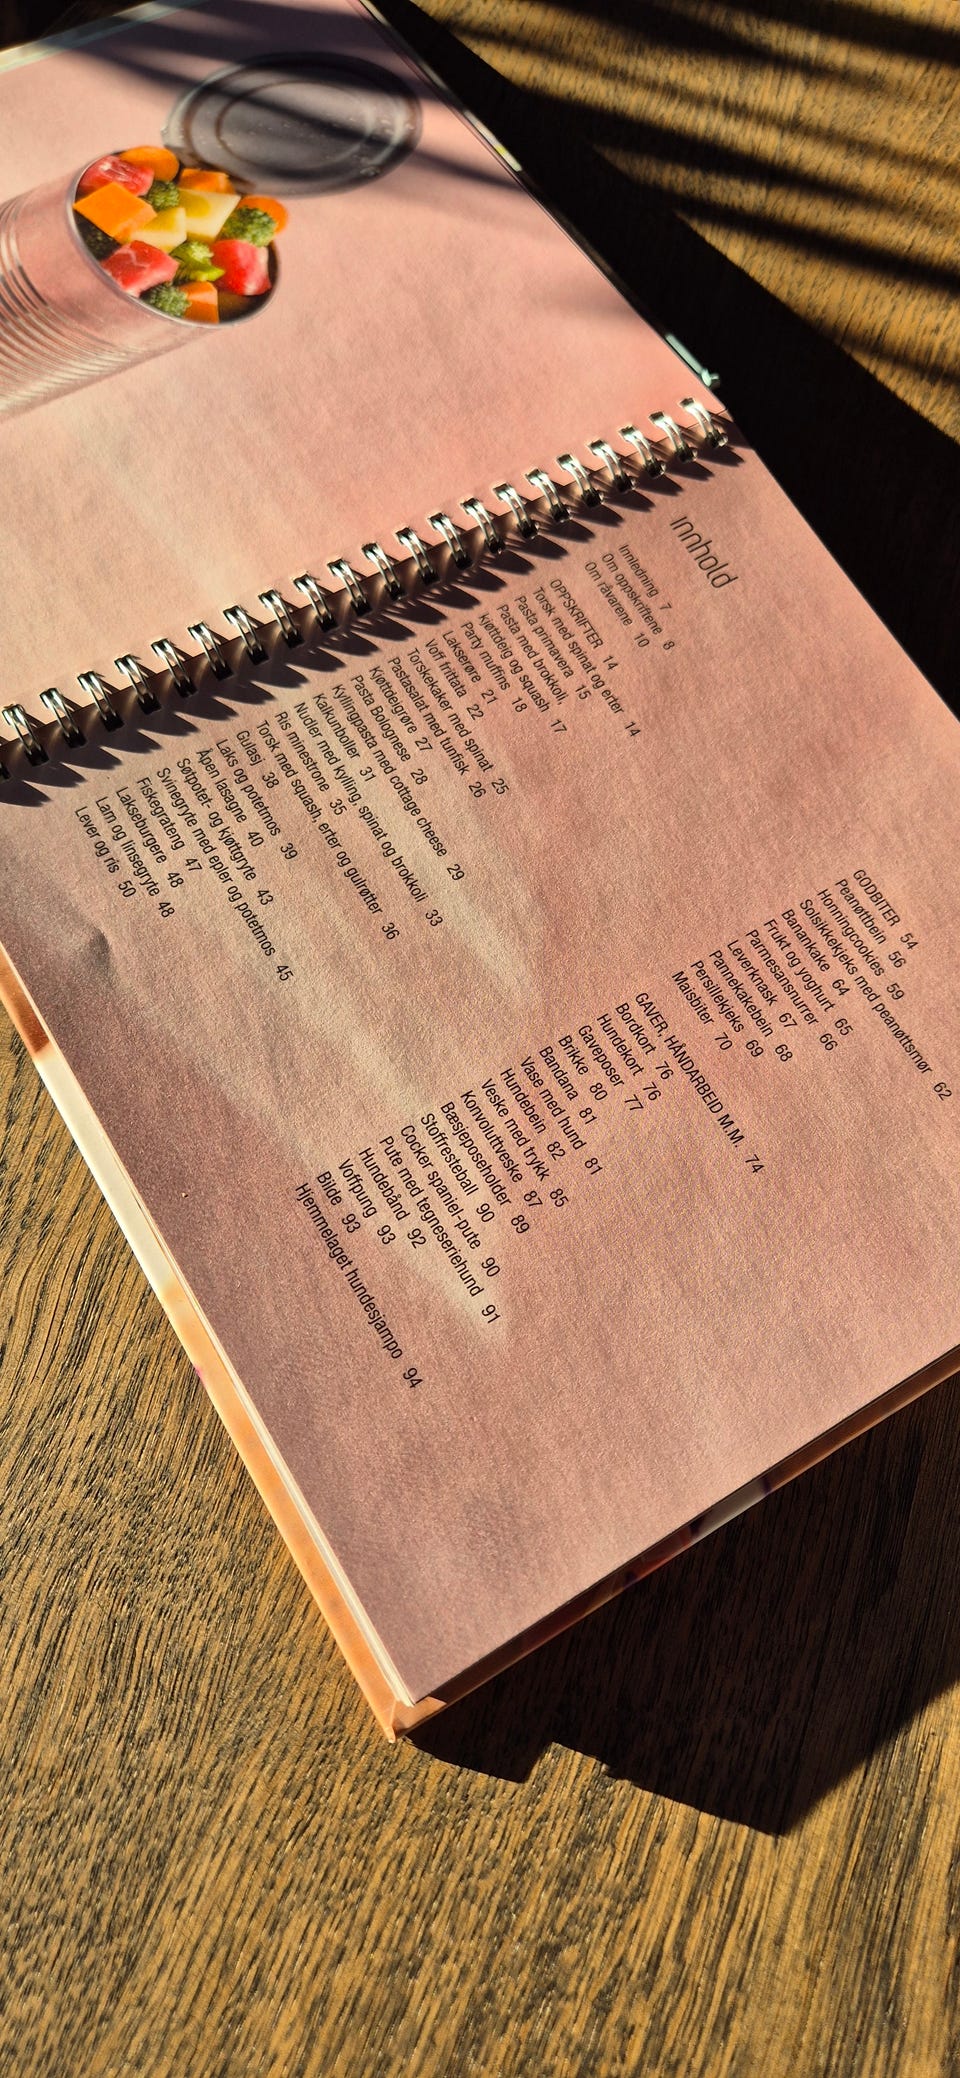 Innhold
Innledning 7
Om oppskriftene 8
Om råvarene 10
OPPSKRIFTER 14
Torsk med spinat og erter 14
Pasta primavera 15
Pasta med brokkoli,
kjøttdeig og squash 17
Party muffins 18
Lakserøre 21
Voff frittata 22
Torskekaker med spinat 25
Pastasalat med tunfisk 26
Kjøttdeigrøre 27
Pasta Bolognese 28
Kyllingpasta med cottage cheese 29
Kalkunboller 31
Nudler med kylling, spinat og brokkoli 33
Ris minestrone 35
Torsk med squash, erter og gulrøtter 36
Gulasj 38
Laks og potetmos 39
Åpen lasagne 40
Søtpotet- og kjøttgryte 43
Svinegryte med epler og potetmos 45
Fiskegrateng 47
Lakseburgere 48
Lam og linsegryte 48
Lever og ris 50
GODBITER 54
Peanøttbein 56
Honningcookies 59
Solsikkekjeks med peanøttsmør 62
Banankake 64
Frukt og yoghurt 65
Parmesansnurrer 66
Leverknask 67
Pannekakebein 68
Persillekjeks 69
Maisbiter 70
GAVER, HÅNDARBEID M.M. 74
Bordkort 76
Hundekort 76
Gaveposer 77
Brikke 80
Bandana 81
Vase med hund 81
Hundebein 82
Veske med trykk 85
Konvoluttveske 87
Bæsjeposeholder 89
Stoffresteball 90
Cocker spaniel-pute 90
Pute med tegneseriehund 91
Hundebånd 92
Voffpung 93
Bilde 93
Hjemmelaget hundesjampo 94